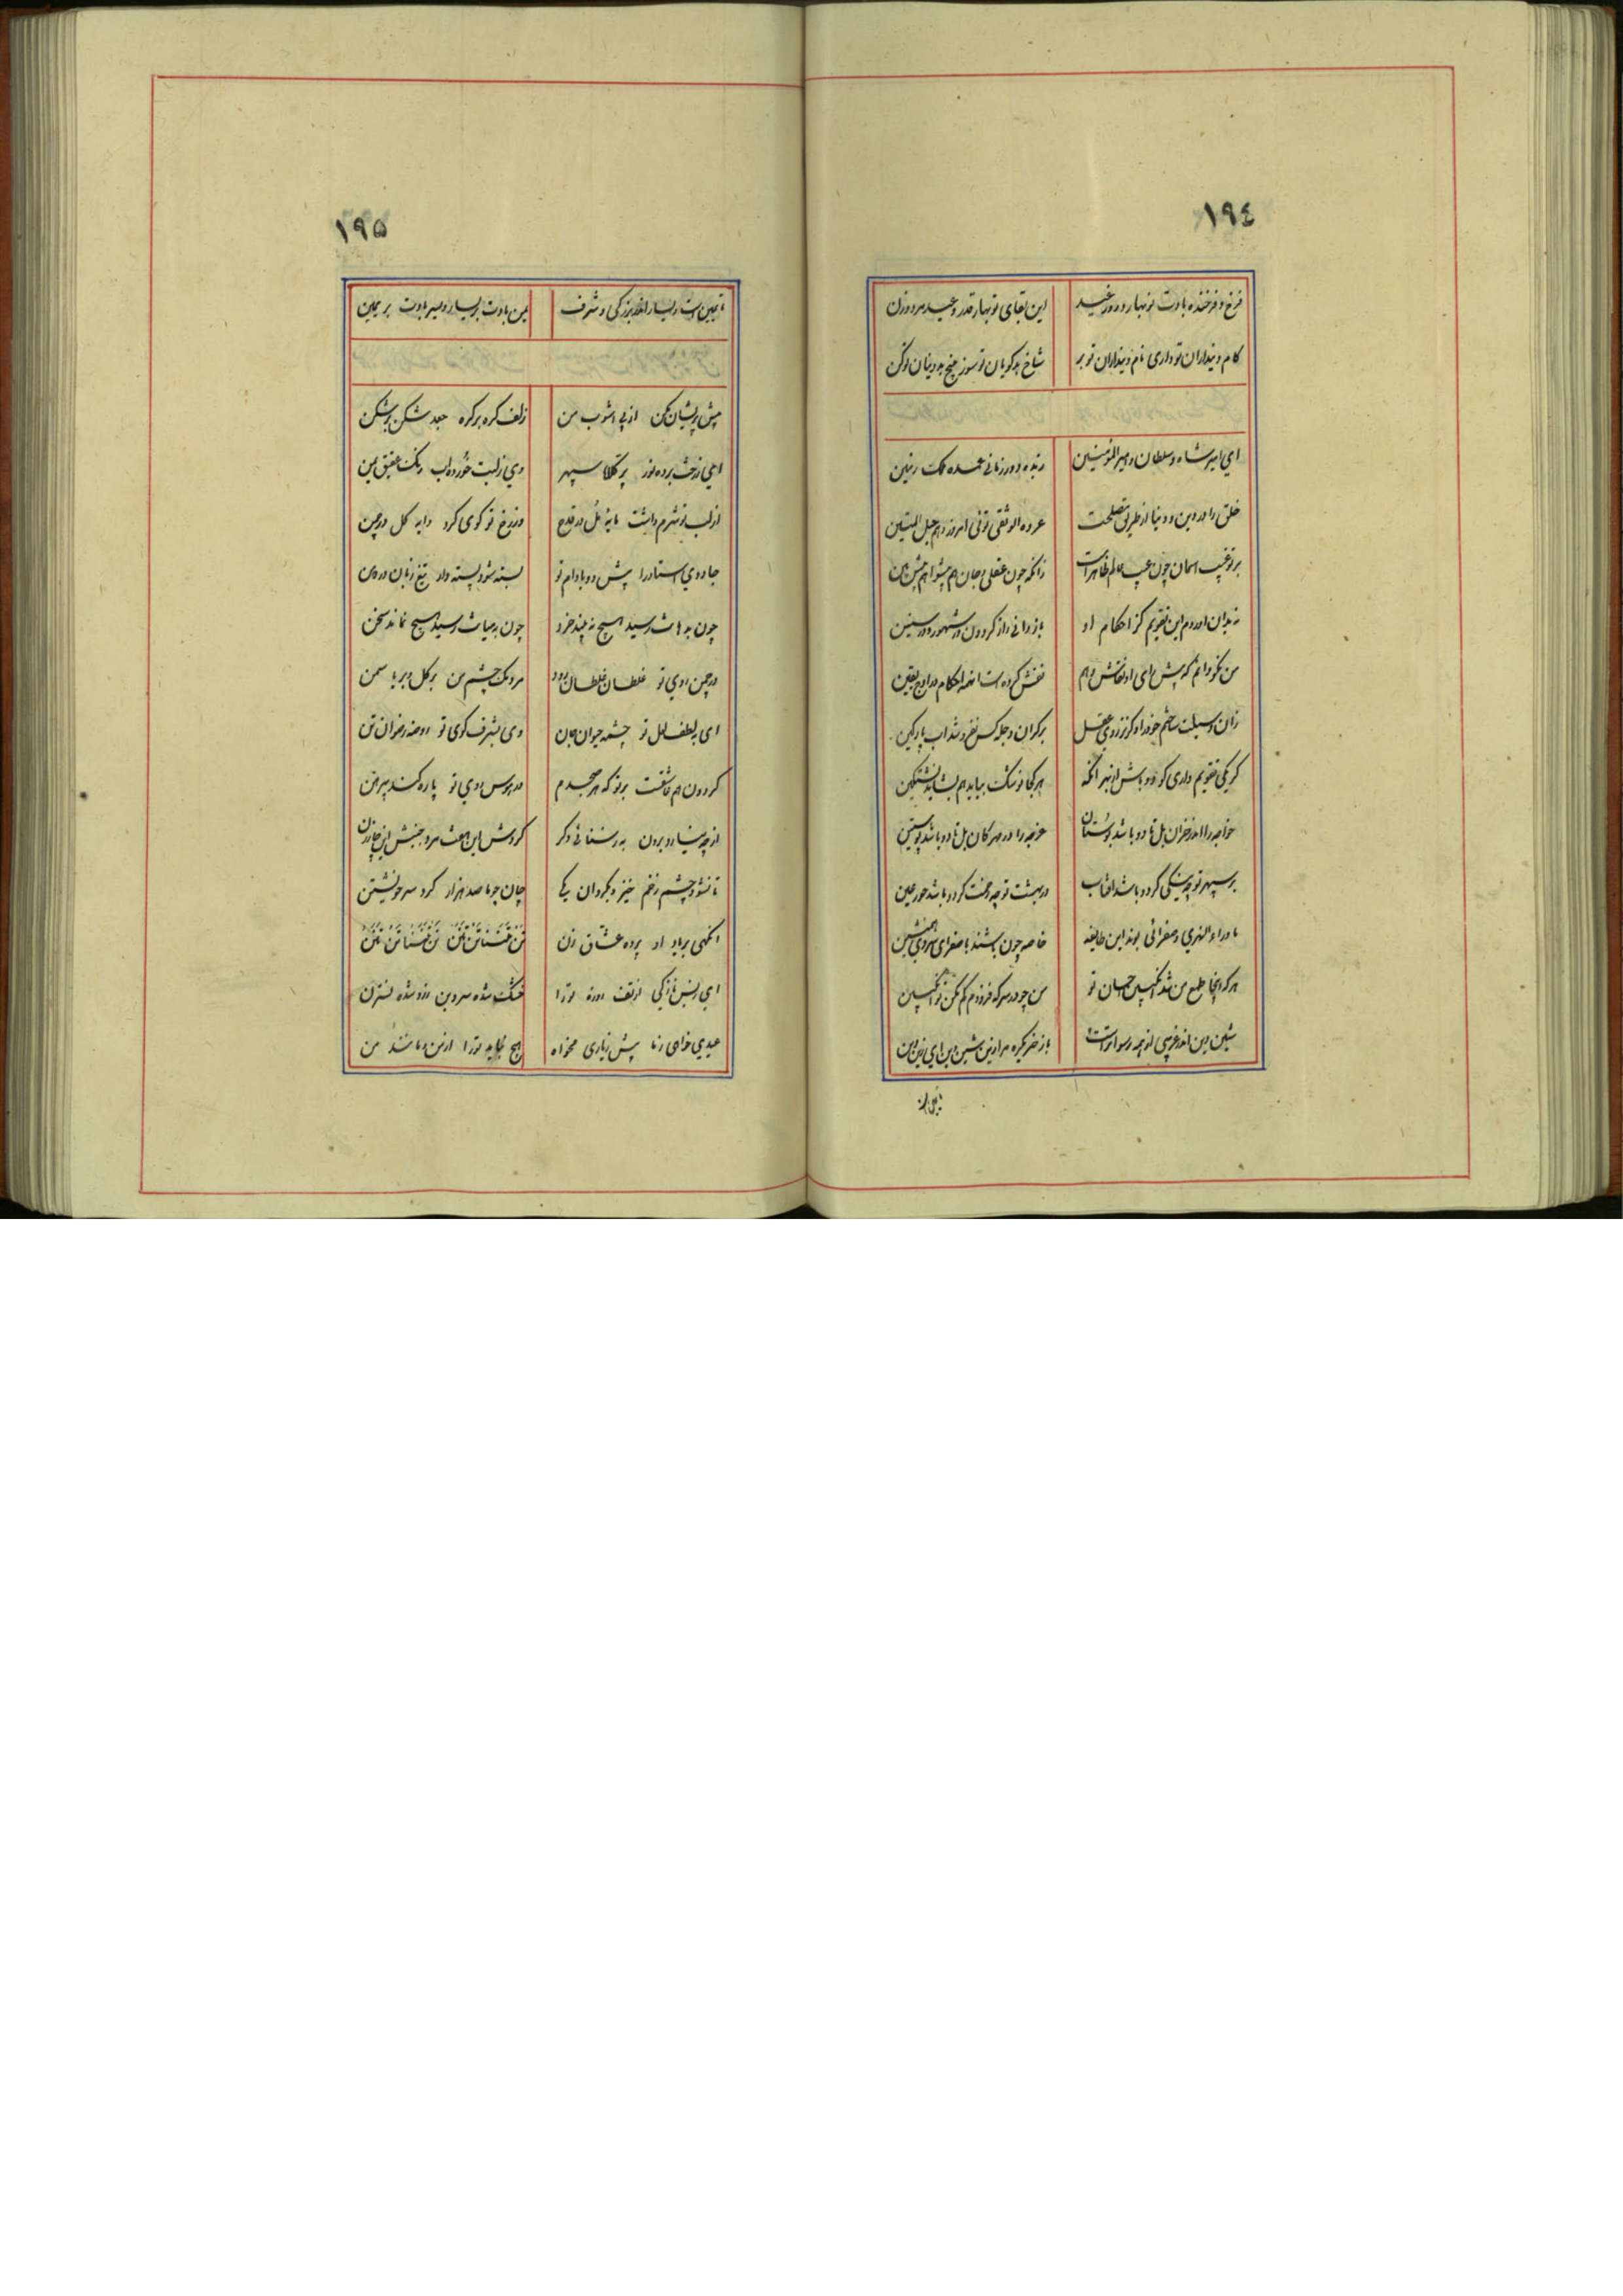 ١٩٤
فرخ و فرخنده بادت نوبهار و روز عید
این بقای نوبهار قدر و عید مرد و زن
کام دینداران تو داری نام دینداران تو بر
شاخ بدگویان تو سوز بیخ بددینان تو کن
ای امیر شاه و سلطان و امیر المومنین
زبده دور زمانی عمده ملک زمین
خلق را در دین و دنیا از طریق مصلحت
عروه الوثقی توئی امروز و هم حبل المتین
بر تو غیب اسمان چون عیب عالم ظاهر است
زانکه چون عقلی و جان هم پیشوا هم پیش بین
نه بدان اوردم این تقویم کز احکام او
بازدانی راز گردون در شهور و در سنین
من نکو دانم که پیش رای او نقاش وهم
نقش کرده است انهمه احکام در لوح یقین
زان وسیلت ساختم خود را و گرنه از روی عقل
بر کران دجله کس نفروشد اب پارگین
گر یکی تقویم داری گو دو باش از بهر انکه
هر کجا نوشکت بیاید هم بشاید نشتگین
خواجه را اندر خزان بل تا دو باشد بوستان
خواجه را در مهرگان بل تا دو باشد پوستین
بر سپهر تو چه تنگی گر دو باشد افتاب
در بهشت تو چه وحشت گر دو باشد حور عین
ماوراء النهری و صفرائی بوند این طایفه
خاصه چون باشند با صفرای سردی همنشین
هر کرا بینجا طمع من شد انگبین احسان تو
من چو در سرکه فزودم کم مکن تو انگبین
شین دین اندر غریبی از همه رسواتر است
باز خر یکره مرا زین شین دین ای زین دین
تا یمین است
١٩٥
تا یمین است و یسار اندر بزرگی و شرف
یمن بادت بر یسار و یسر بادت بر یمین
بیش پریشان مکن از پی اشوب من
زلف گره بر گره جعد شکن بر شکن
ای ز رخت برده نور پر کلاه سپهر
وی ز لبت خورده اب رنگ عقیق یمن
از لب تو شرم داشت مایه مل در قدح
وز رخ تو گوی کرد دایه گل در چمن
جادوی استاد را پیش دو بادام تو
بسته شود پسته وار تیغ زبان در دهن
چون به دهانت رسید هیچ نه بیند خرد
چون به میانت رسید هیچ نماند سخن
در چمن روی تو غلطان غلطان رود
مردمک چشم من بر گل و بر یاسمن
ای به لطف لعل تو چشمه حیوان جان
وی بشرف کوی تو روضه رضوان تن
گردون هم عاشقست بر تو که هر صبحدم
در هوس روی تو پاره کند پیرهن
از چه نیارد برون به ز سنائی دگر
گردش این هفت مرد جنبش این چار زن
تا نشود چشم زخم خیز و بگردان یکی
جان چو ما صد هزار گرد سر خویشتن
انگهی بر یاد او پرده عشاق زن
تن تننا تن تنن تن تننا تن تنن
ای ز پس نازکی از تف روزه ترا
خشک شده سرو بن زرد شده نسترن
عیدی خواهی ز ما پیش ز یاری مخواه
هیچ نیاید ترا از من و مانند من